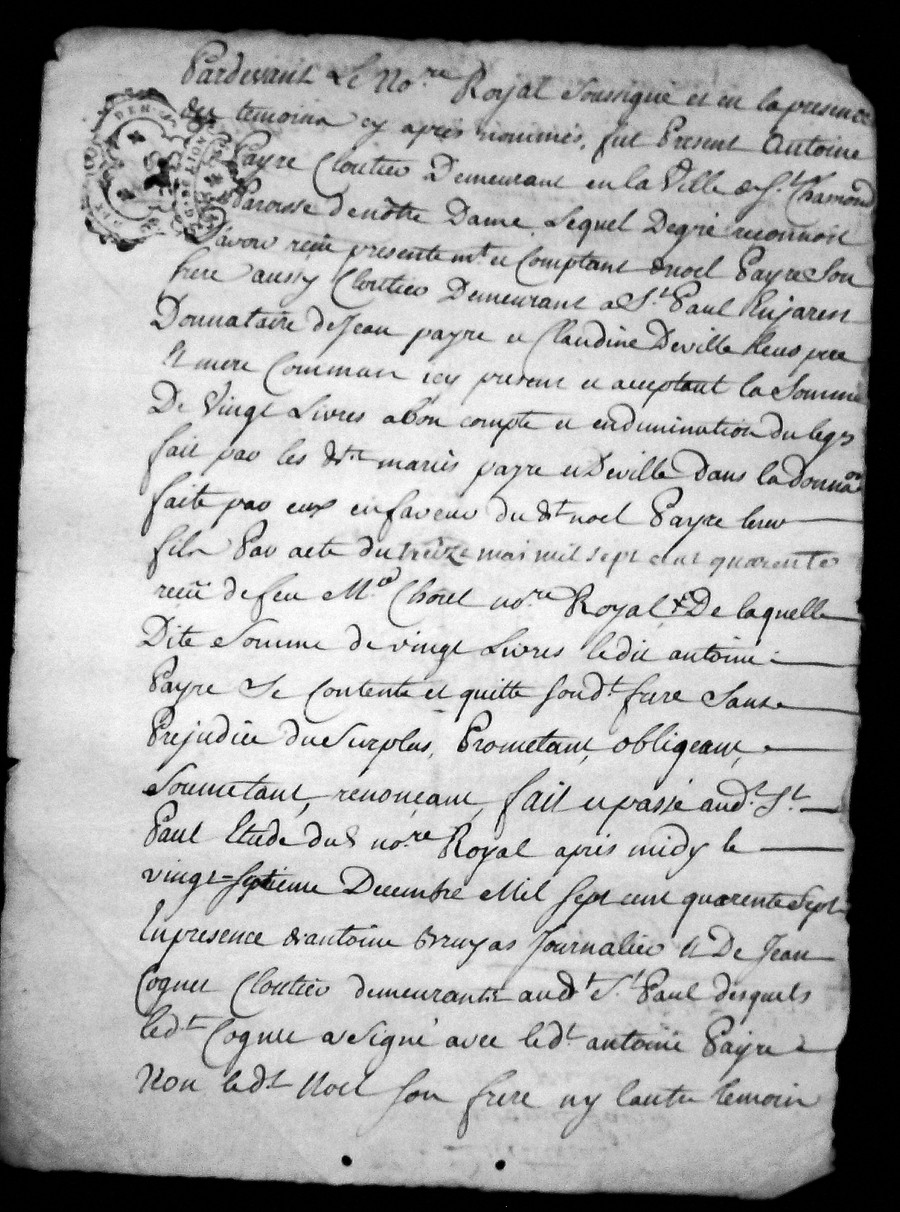 Pardevant Le No.re Royal Soussigné et en la presence
des temoins cy apres nommés, fut Present Antoine
Payre Cloutier Demeurant en la Ville de St. Chamond
Paroisse de nôtre Dame Lequel De gré reconnoit
D'avoir reçu presentemt. et Comptant de noel Payre Son
frere aussy Cloutier Demeurant a St. Paul Enjarest
Donnataire de Jean payre et Claudine Deville Leurs pere
Et mere Communs icy present et acceptant la Somme
De Vingt Livres a bon compte et en diminution du legs
fait par les dts. mariés payre et Deville dans la donnaon
faite par eux en faveur du dt. noel Payre leur
fils Par acte du treize mai mil sept cent quarente
reçu de feu Me. Chorel no.re Royal, De laquelle
Dite Somme de vingt Livres ledit antoine
Payre Se Contente et quitte sond.t frere Sans
Prejudice du Surplus, Prometant, obligeant,
Soumetant, renonçant, fait et passé aud.t St.
Paul Etude dud no.re Royal après midy le
vingt-septieme Decembre Mil Sept cent quarente Sept
En presence d'antoine Bruyas Journalier Et De Jean
Cognet Cloutier demeurants aud.t St. Paul desquels
led.t Cognet a Signé avec led.t antoine Payre
Non led.t Noel son frere ny l'autre temoin
DEN.
LION